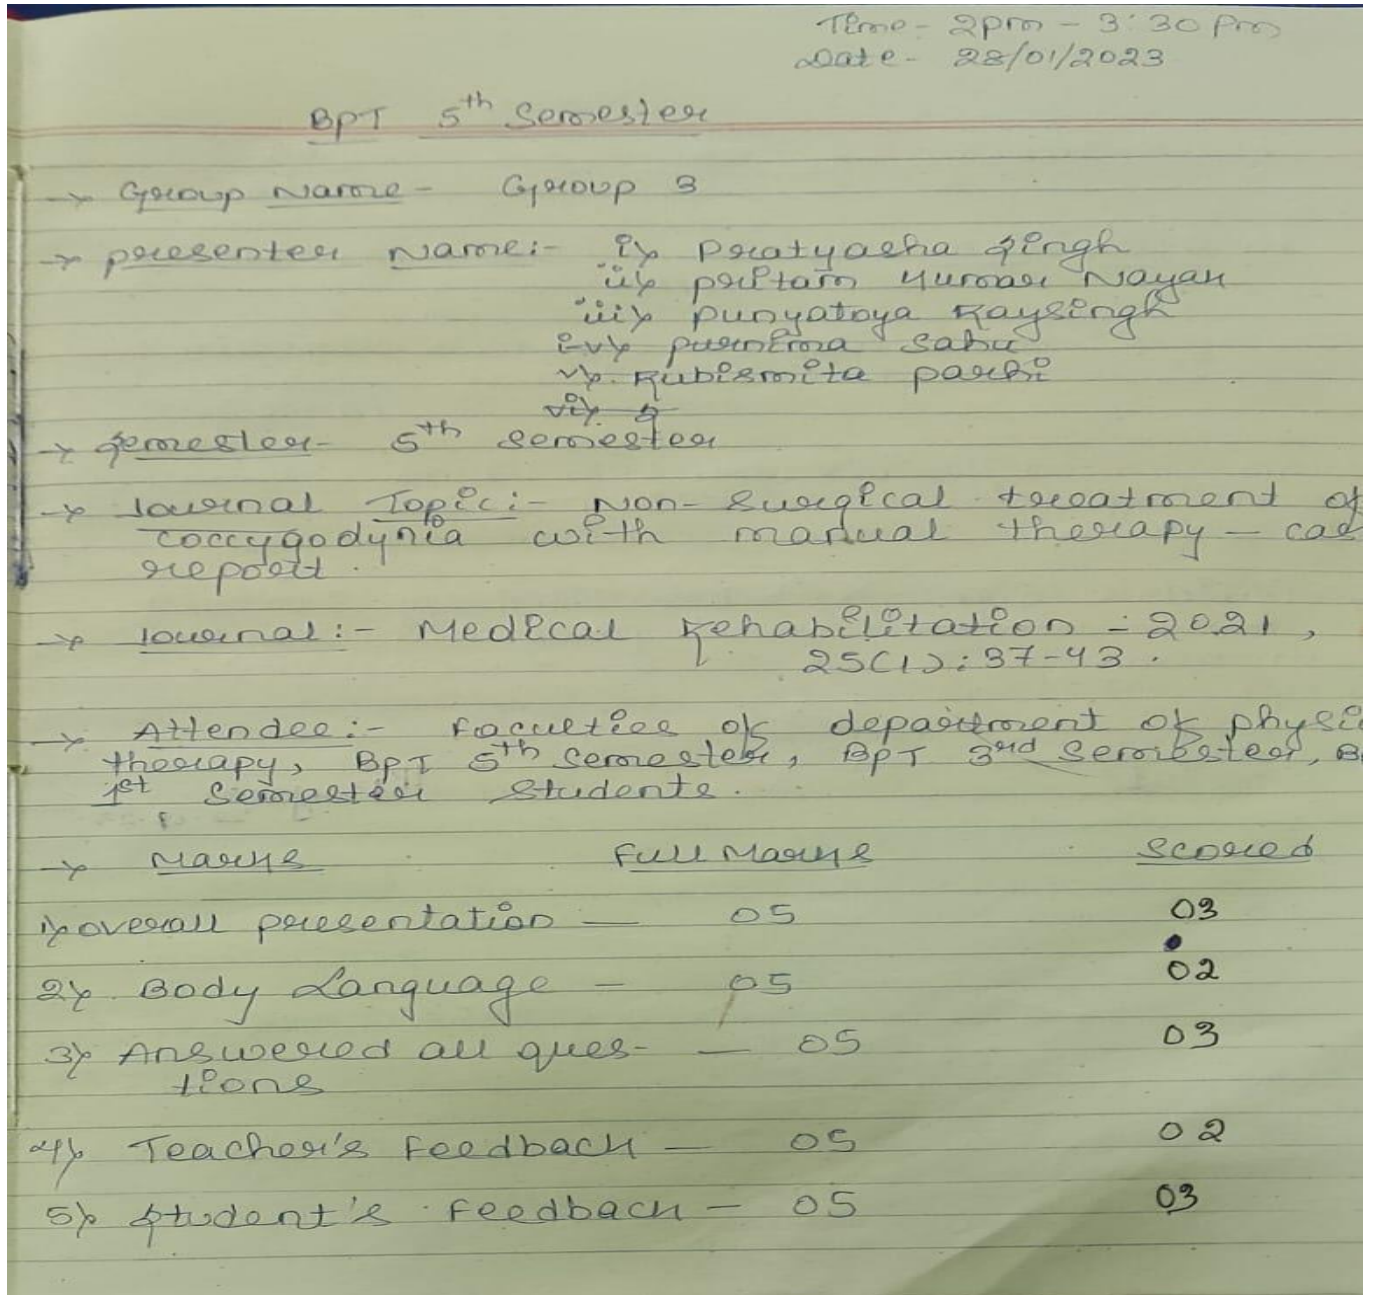 Time - 2pm - 3:30 Pm
Date - 28/01/2023
BPT 5th Semester
→ Group Name - Group 3
→ presenter Name:- i) Pratyasha Singh
ii) pritam Kumar Nayak
iii) punyatoya Raysingh
iv) purnima Sahu
v) Rubismita parhi
vi)
→ Semester - 5th Semester
→ Journal Topic:- Non-Surgical treatment of
coccygodynia with manual therapy - cas
report.
→ Journal:- Medical Rehabilitation - 2021,
25(1):37-43.
→ Attendee:- Faculties of department of physi
therapy, BPT 5th Semester, BPT 3rd Semester, B
1st Semester Students.
→ Marks Full Marks Scored
1) overall presentation — 05 03
2) Body Language — 05 02
3) Answered all ques- — 05 03
tions
4) Teacher's Feedback — 05 02
5) Student's Feedback — 05 03